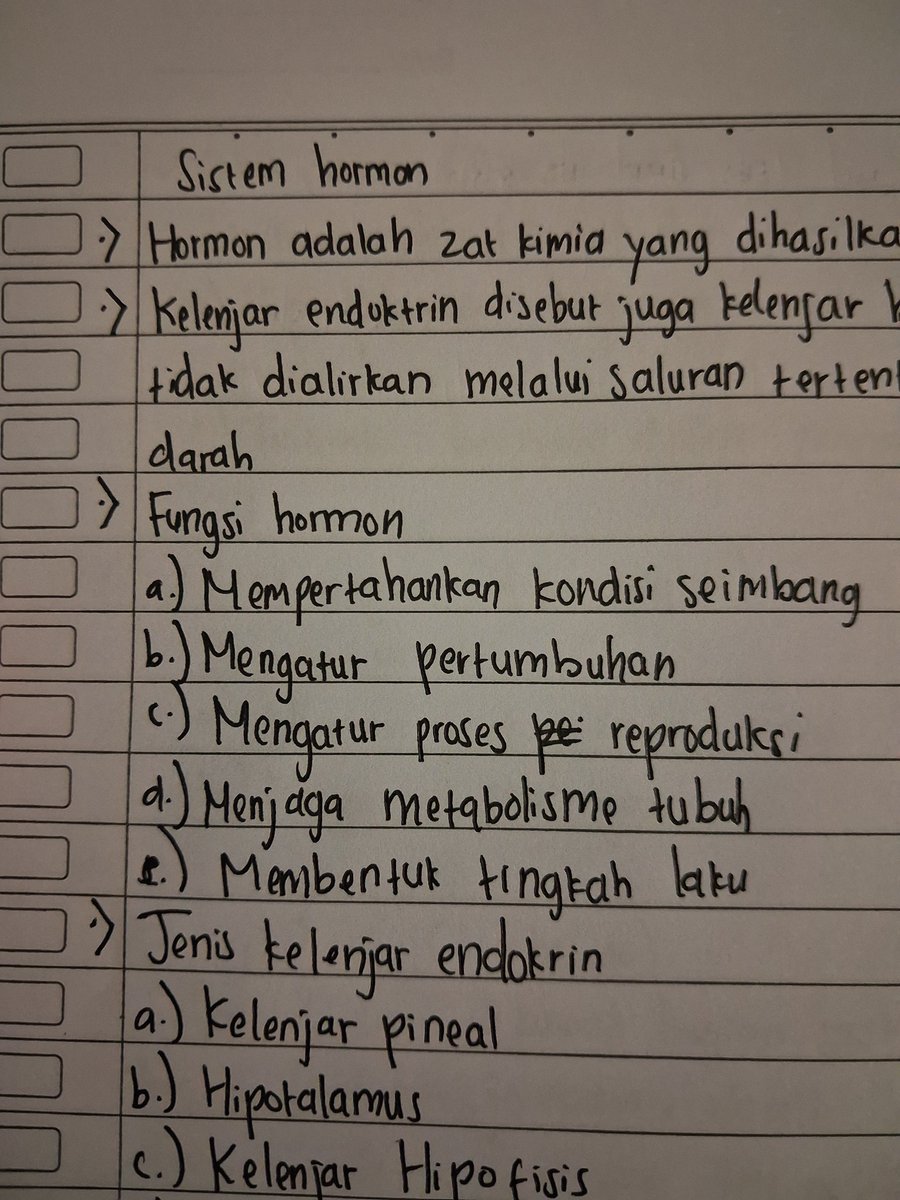 Sistem hormon
·> Hormon adalah zat kimia yang dihasilka
·> Kelenjar endoktrin disebut juga kelenjar
tidak dialirkan melalui saluran terten
darah
·> Fungsi hormon
a.) Mempertahankan kondisi seimbang
b.) Mengatur pertumbuhan
c.) Mengatur proses reproduksi
d.) Menjaga metabolisme tubuh
e.) Membentuk tingkah laku
·> Jenis kelenjar endokrin
a.) Kelenjar pineal
b.) Hipotalamus
c.) Kelenjar Hipofisis